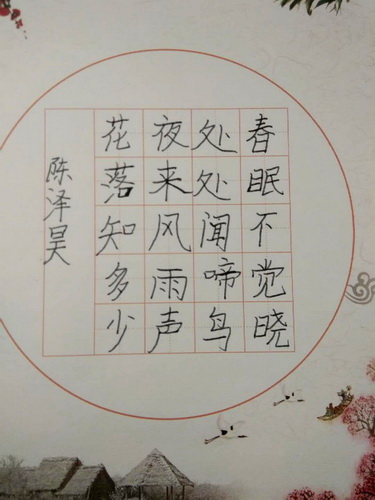 春眠不觉晓
处处闻啼鸟
夜来风雨声
花落知多少
陈泽昊